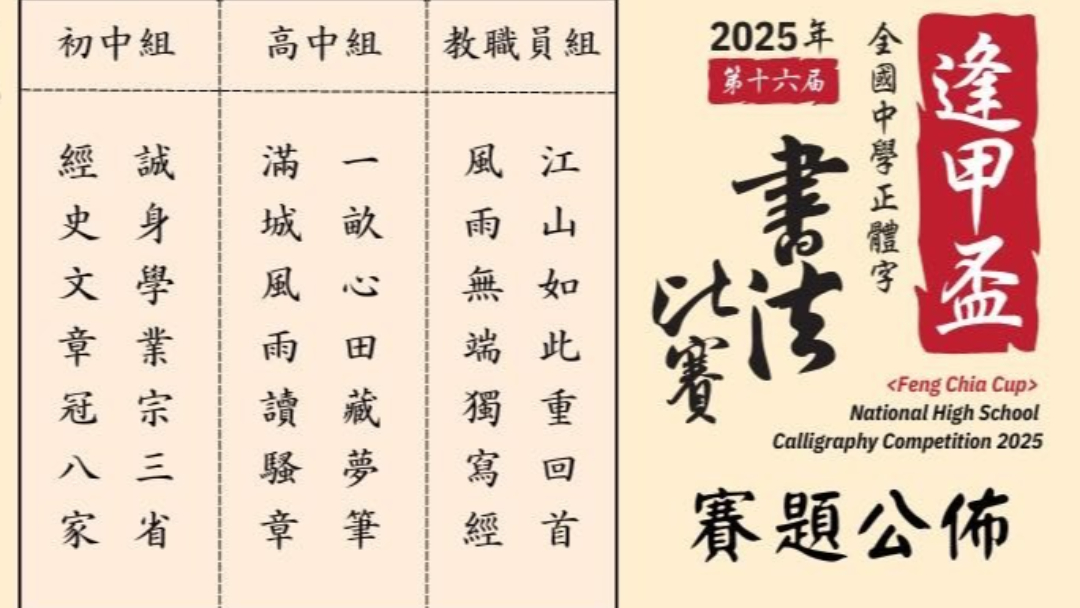 逢甲盃
全國中學正體字
2025年
第十六届
書法
比賽
<Feng Chia Cup>
National High School
Calligraphy Competition 2025
賽題公佈
教職員組
江山如此重回首
風雨無端獨寫經
高中組
一畝心田藏夢筆
滿城風雨讀騷章
初中組
誠身學業宗三省
經史文章冠八家